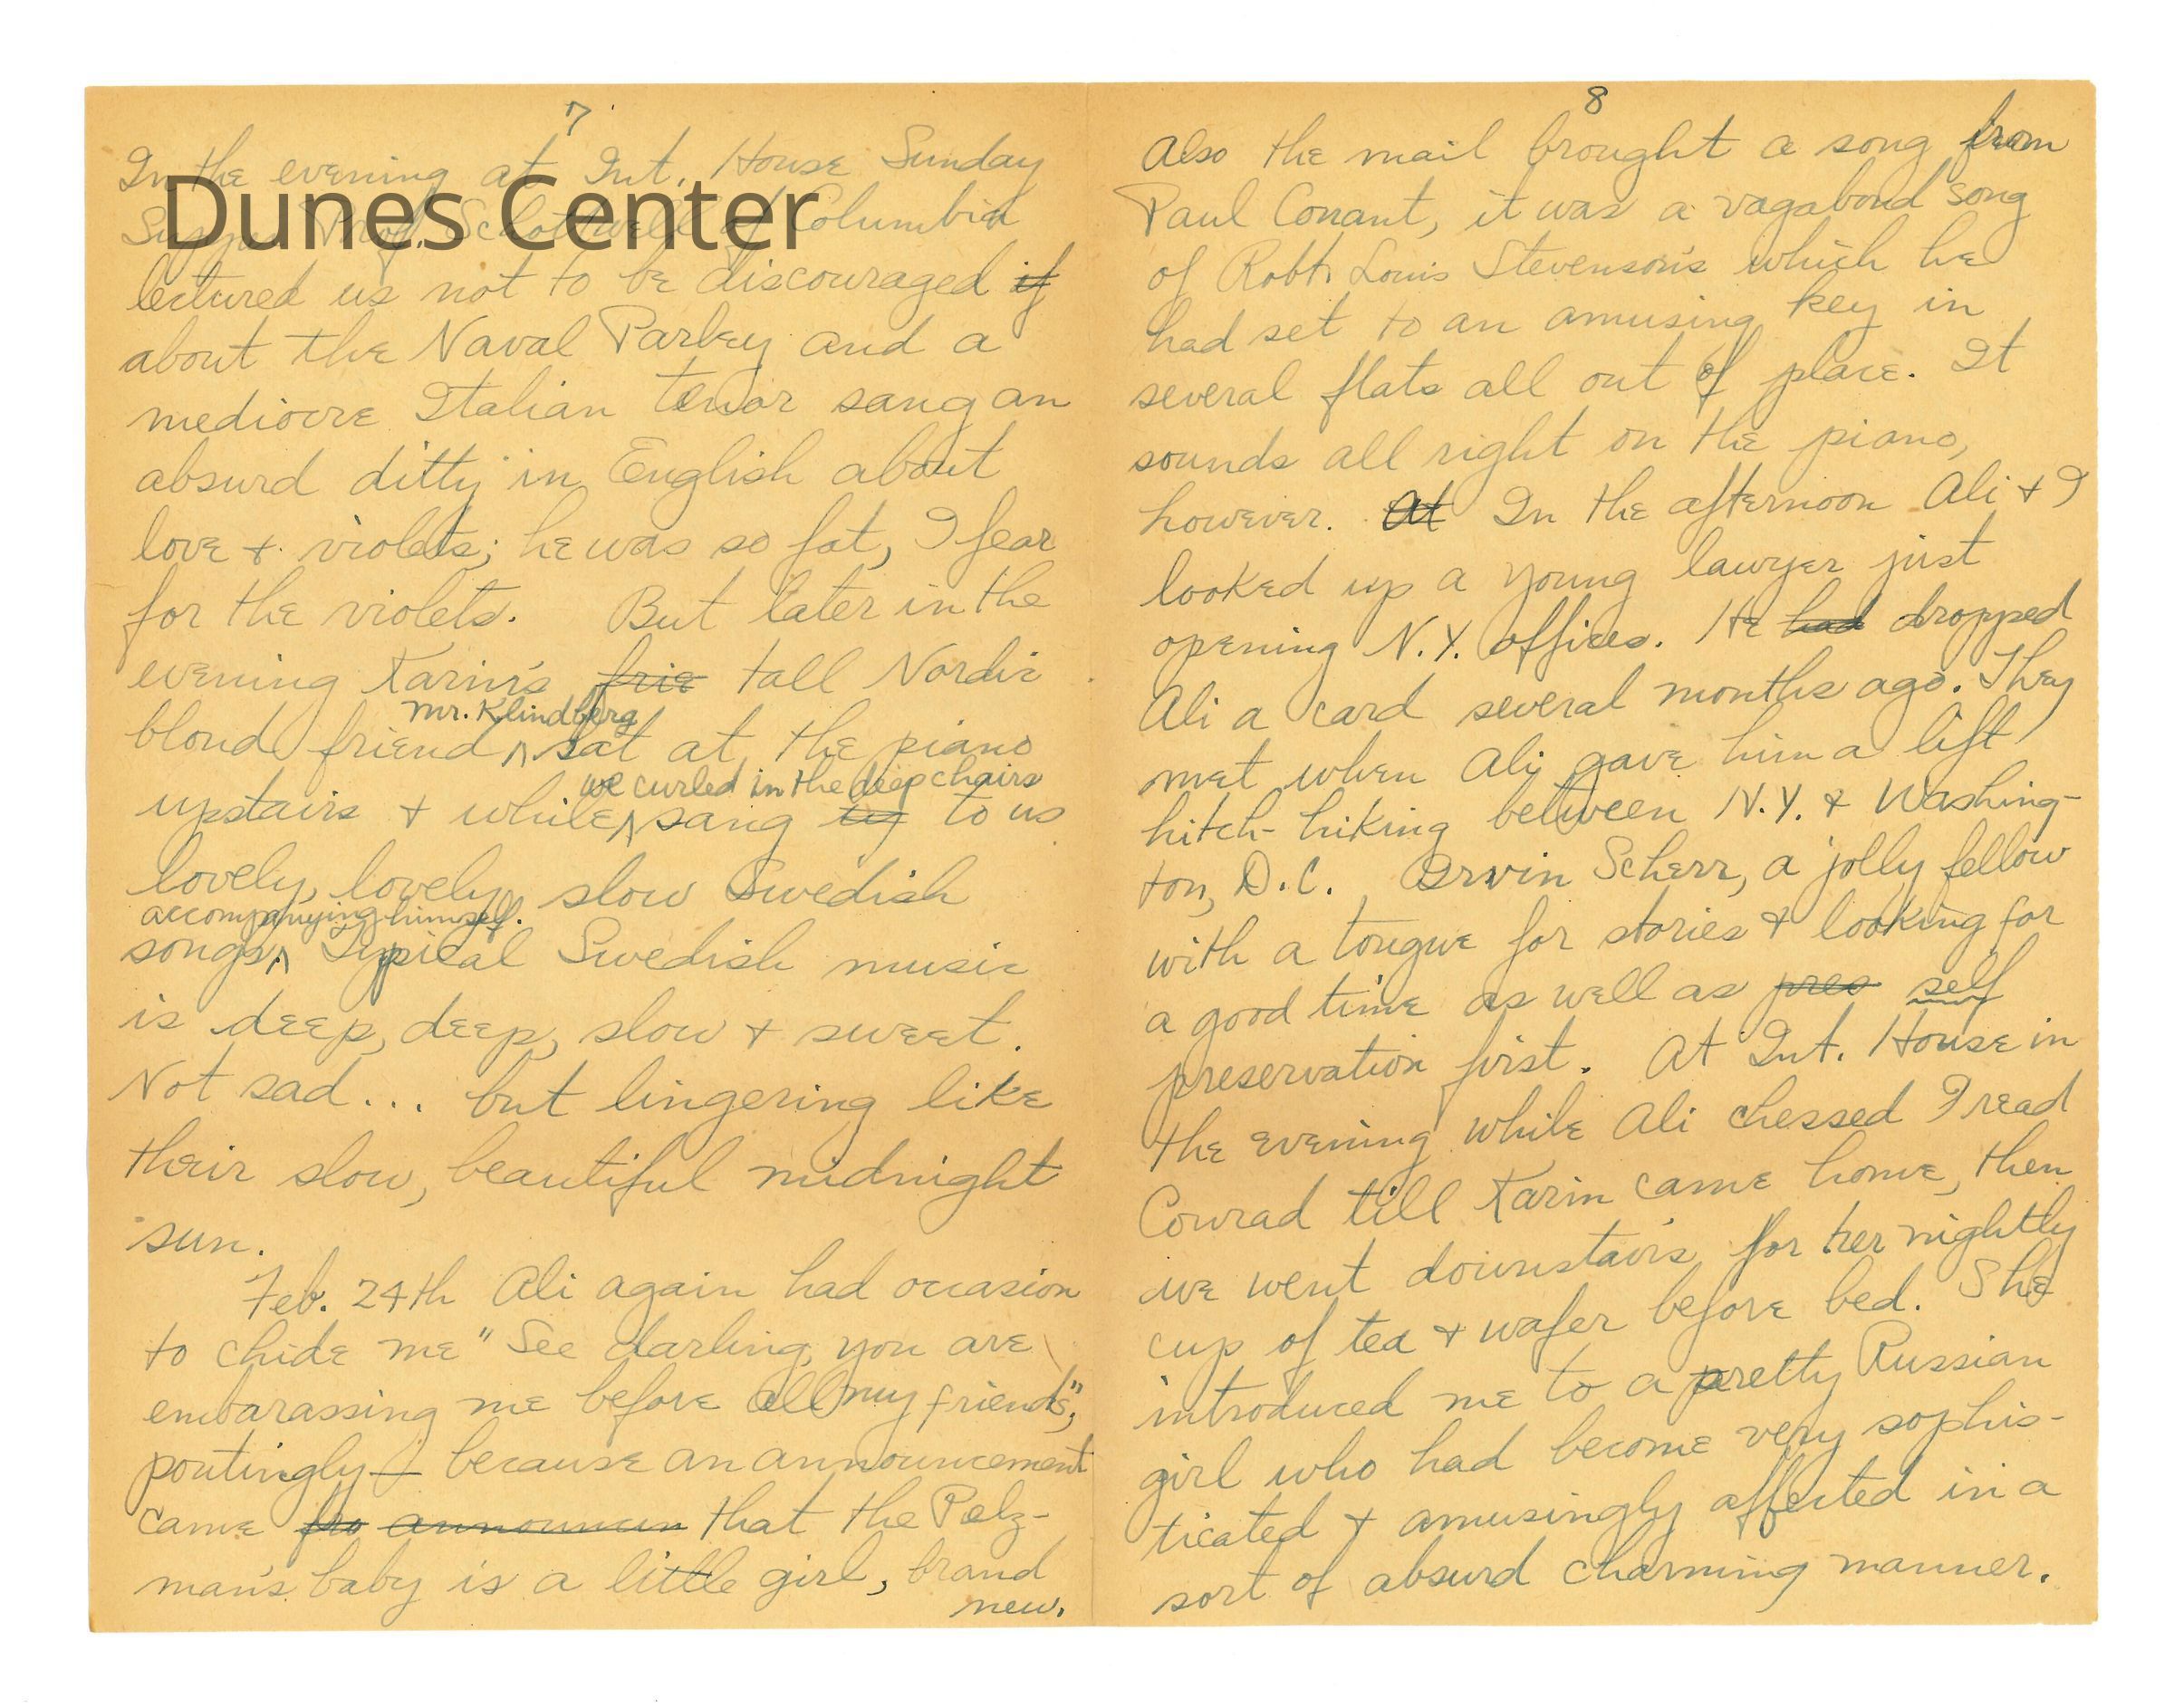 7
In the evening at Int. House Sunday
Dunes Center
Supper Prof. Schottwell of Columbia
lectured us not to be discouraged if
about the Naval Parley and a
mediocre Italian tenor sang an
absurd ditty in English about
love + violets; he was so fat, I fear
for the violets. But later in the
evening Karin's frie tall Nordic
Mr. Klindberg
blond friend ^ sat at the piano
we curled in the deep chairs
upstairs + while ^ sang to us
lovely, lovely, slow Swedish
accompanying himself.
songs ^ Typical Swedish music
is deep, deep, slow + sweet.
Not sad... but lingering like
their slow, beautiful midnight
sun.
Feb. 24th Ali again had occasion
to chide me "See darling, you are
embarassing me before all my friends",
poutingly — because an announcement
came fro announcem that the Pelz-
man's baby is a little girl, brand
new.
8
Also the mail brought a song from
Paul Conant, it was a vagabond song
of Robt. Louis Stevenson's which he
had set to an amusing key in
several flats all out of place. It
sounds all right on the piano,
however. At In the afternoon Ali + I
looked up a young lawyer just
opening N.Y. offices. He had dropped
Ali a card several months ago. They
met when Ali gave him a lift
hitch-hiking between N.Y. + Washing-
ton, D.C. Orwin Scherr, a jolly fellow
with a tongue for stories + looking for
a good time as well as pres self
preservation first. At Int. House in
the evening while Ali chessed I read
Conrad till Karin came home, then
we went downstairs for her nightly
cup of tea + wafer before bed. She
introduced me to a pretty Russian
girl who had become very sophis-
ticated + amusingly affected in a
sort of absurd charming manner.